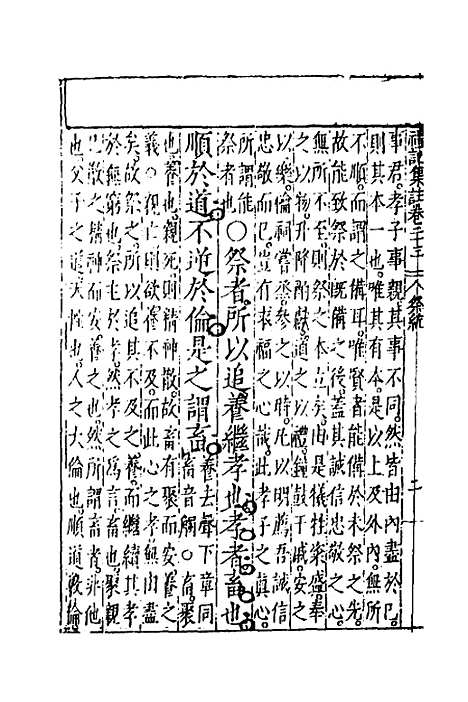 禮記集註卷二十三 祭統 二
事君孝子事親其事不同然皆由內盡於己
則其本一也唯其有本是以上及外內無所
不順而謂之備耳唯賢者能備於未祭之先
故能致祭於旣備之後蓋其誠信忠敬之心
無所不至則祭之本立矣由是犧牲粢盛奉
之以物升降酬獻道之以禮鐘鼓干戚安之
以樂倫祠嘗烝參之以時凡以明薦吾誠信
忠敬而已豈有求福之心哉此孝子之眞心
所謂能
祭者也〇祭者所以追養繼孝也孝者畜也
順於道不逆於倫是之謂畜養去聲下章同
畜音觸〇畜聚
也養也養死則精神散故畜有聚而安養之
義〇親亡則欲養不及而此心之孝無由盡
矣故祭之所以追其不及之養而繼續其孝
於無窮也祭主於孝然孝之爲言畜也聚親
已散之精神而安養之也然所謂畜者非他
也父子之道天性也人之大倫也順道敦倫